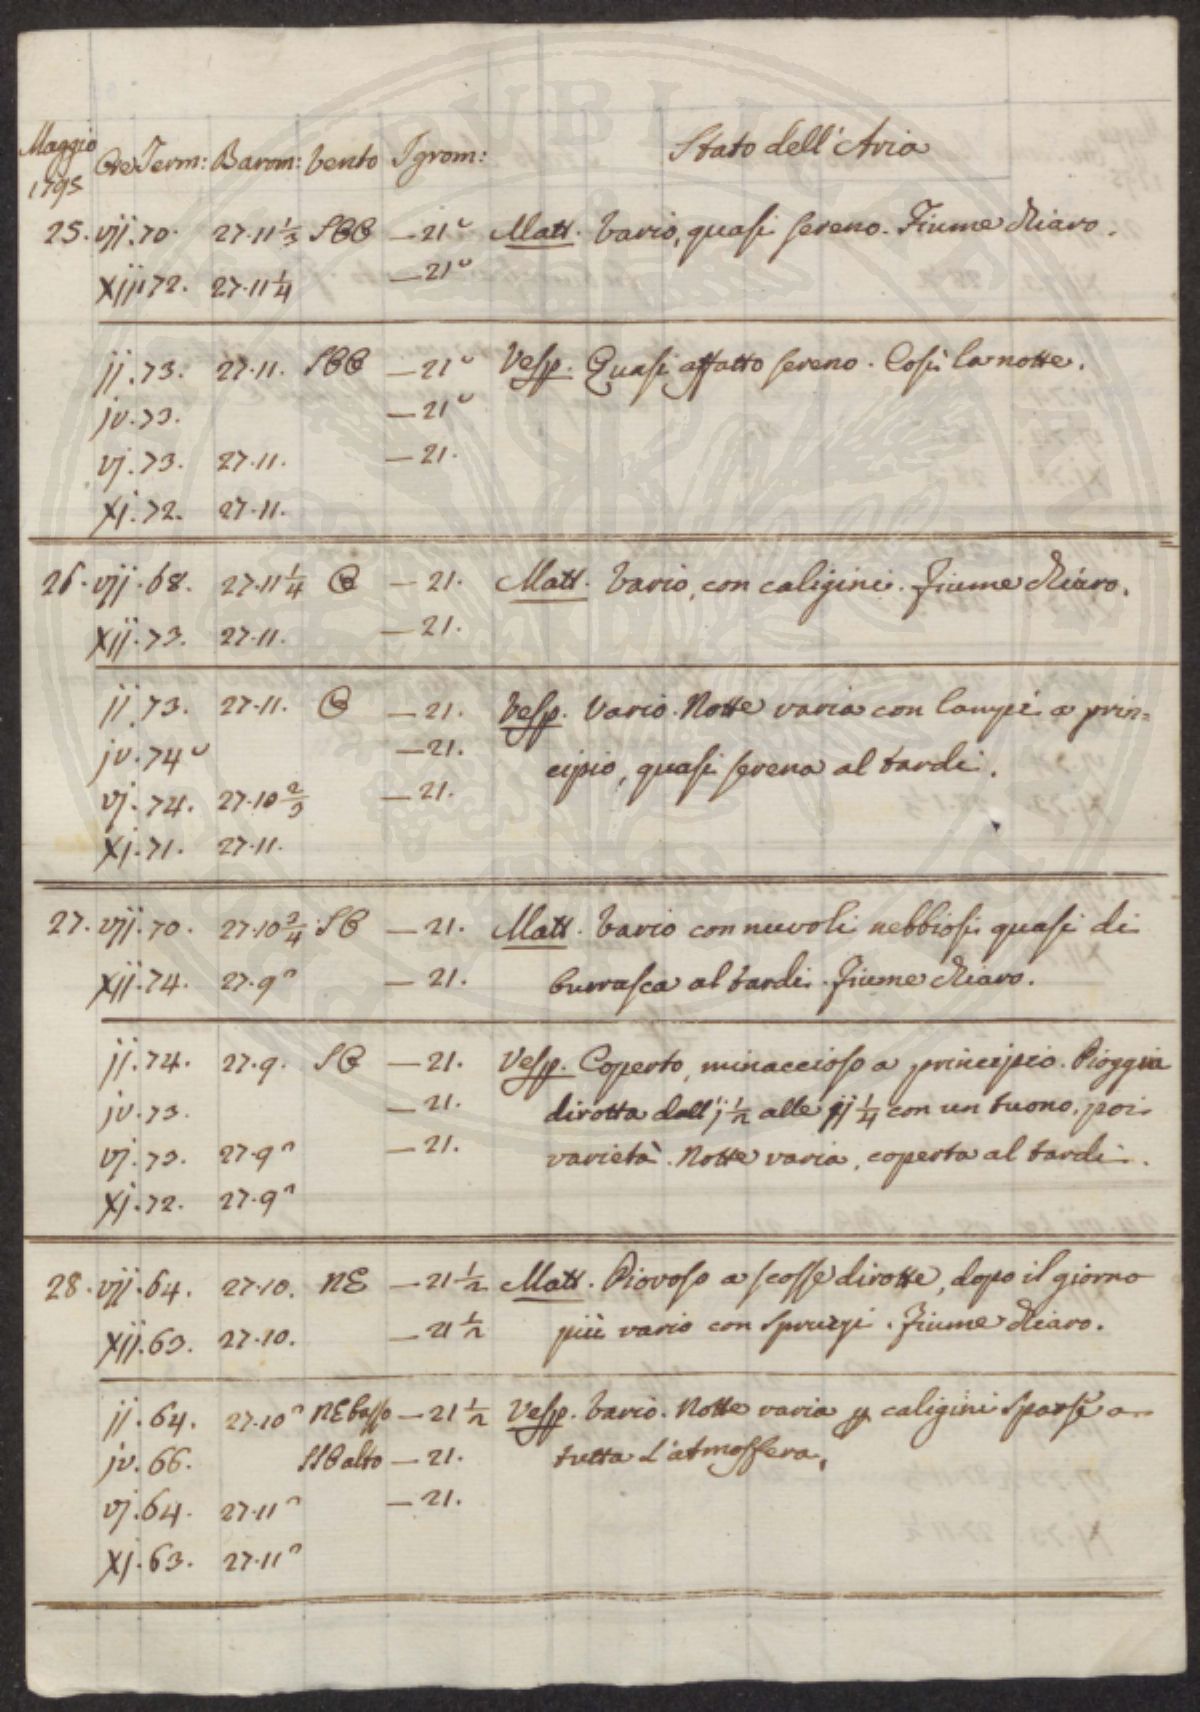 Maggio
1795
Ore Term: Barom: Vento Igrom: Stato dell'Aria
25. vij. 70. 27.11 1/3 SOO — 21u Matt. Vario, quasi sereno. Fiume chiaro.
xij. 72. 27.11 1/4 — 21u
ij. 73. 27.11. SOO — 21u Vesp. Quasi affatto sereno. Così la notte.
iv. 73. — 21u
vj. 73. 27.11. — 21.
xj. 72. 27.11.
26. vij. 68. 27.11 1/4 O — 21. Matt. Vario, con caligini. Fiume chiaro.
xij. 73. 27.11. — 21.
ij. 73. 27.11. O — 21. Vesp. Vario. Notte varia con lampi a prin=
iv. 74u — 21. cipio, quasi serena al tardi.
vj. 74. 27.10 2/3 — 21.
xj. 71. 27.11.
27. vij. 70. 27.10 3/4 SO — 21. Matt. Vario con nuvoli nebbiosi quasi di
xij. 74. 27.9n — 21. burrasca al tardi. Fiume chiaro.
ij. 74. 27.9. SO — 21. Vesp. Coperto, minaccioso a principio. Pioggia
iv. 73. — 21. dirotta dall'j 1/2 alle ij 1/4 con un tuono, poi
vj. 73. 27.9n — 21. varietà. Notte varia, coperta al tardi.
xj. 72. 27.9n
28. vij. 64. 27.10. NE — 21 1/2 Matt. Piovoso a scosse dirotte, dopo il giorno
xij. 63. 27.10. — 21 1/2 più vario con spruzzi. Fiume chiaro.
ij. 64. 27.10n NE basso — 21 1/2 Vesp. Vario. Notte varia p caligini sparse a
iv. 66. SSO alto — 21. tutta l'atmosfera.
vj. 64. 27.11n — 21.
xj. 63. 27.11n